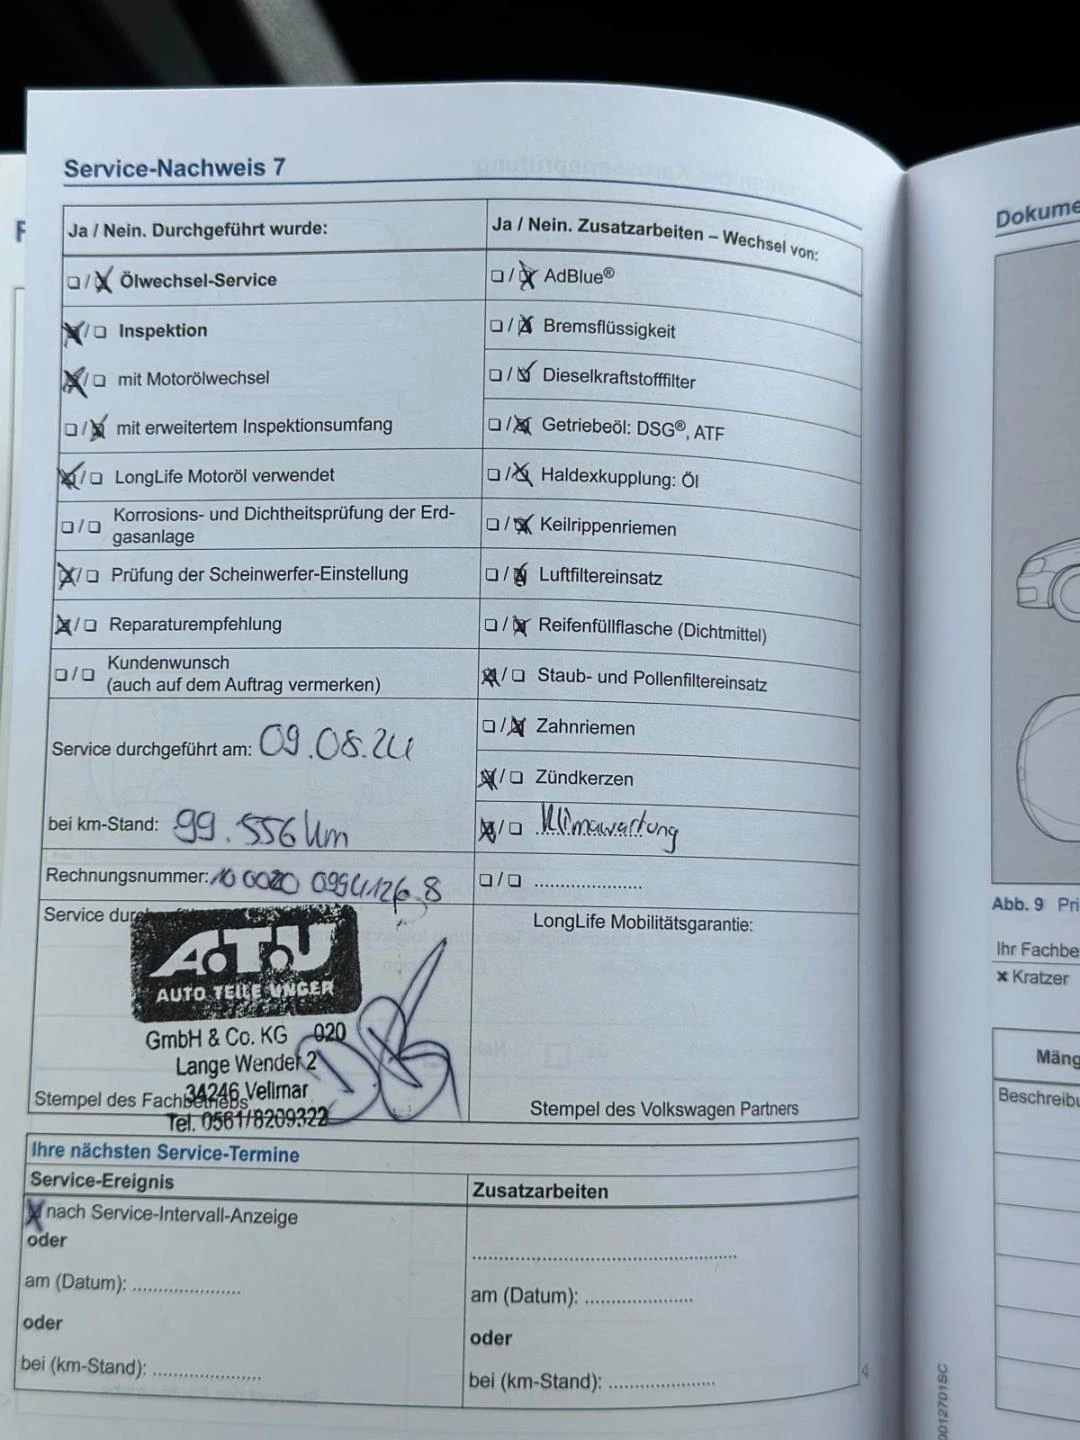 Service-Nachweis 7
Ja / Nein. Durchgeführt wurde:
☐/☒ Ölwechsel-Service
☒/☐ Inspektion
☒/☐ mit Motorölwechsel
☐/☒ mit erweitertem Inspektionsumfang
☒/☐ LongLife Motoröl verwendet
☐/☐ Korrosions- und Dichtheitsprüfung der Erd-
gasanlage
☒/☐ Prüfung der Scheinwerfer-Einstellung
☒/☐ Reparaturempfehlung
☐/☐ Kundenwunsch
(auch auf dem Auftrag vermerken)
Service durchgeführt am: 09.08.24
bei km-Stand: 99.556 km
Rechnungsnummer: 10 0020 0994126 8
Service
A.T.U
AUTO TEILE UNGER
GmbH & Co. KG 020
Lange Wender 2
34246 Vellmar
Stempel des Fachbetriebs
Tel. 0561/8209322
Ja / Nein. Zusatzarbeiten – Wechsel von:
☐/☒ AdBlue®
☐/☒ Bremsflüssigkeit
☐/☒ Dieselkraftstofffilter
☐/☒ Getriebeöl: DSG®, ATF
☐/☒ Haldexkupplung: Öl
☐/☒ Keilrippenriemen
☐/☒ Luftfiltereinsatz
☐/☒ Reifenfüllflasche (Dichtmittel)
☒/☐ Staub- und Pollenfiltereinsatz
☐/☒ Zahnriemen
☒/☐ Zündkerzen
☒/☐ Klimawartung
☐/☐ ......................
LongLife Mobilitätsgarantie:
Stempel des Volkswagen Partners
Ihre nächsten Service-Termine
Service-Ereignis
☒ nach Service-Intervall-Anzeige
oder
am (Datum): ......................
oder
bei (km-Stand): ......................
Zusatzarbeiten
......................
am (Datum): ......................
oder
bei (km-Stand): ......................
4
0012701SC
Dokume
Abb. 9 Pri
Ihr Fachbe
× Kratzer
Mäng
Beschreibu